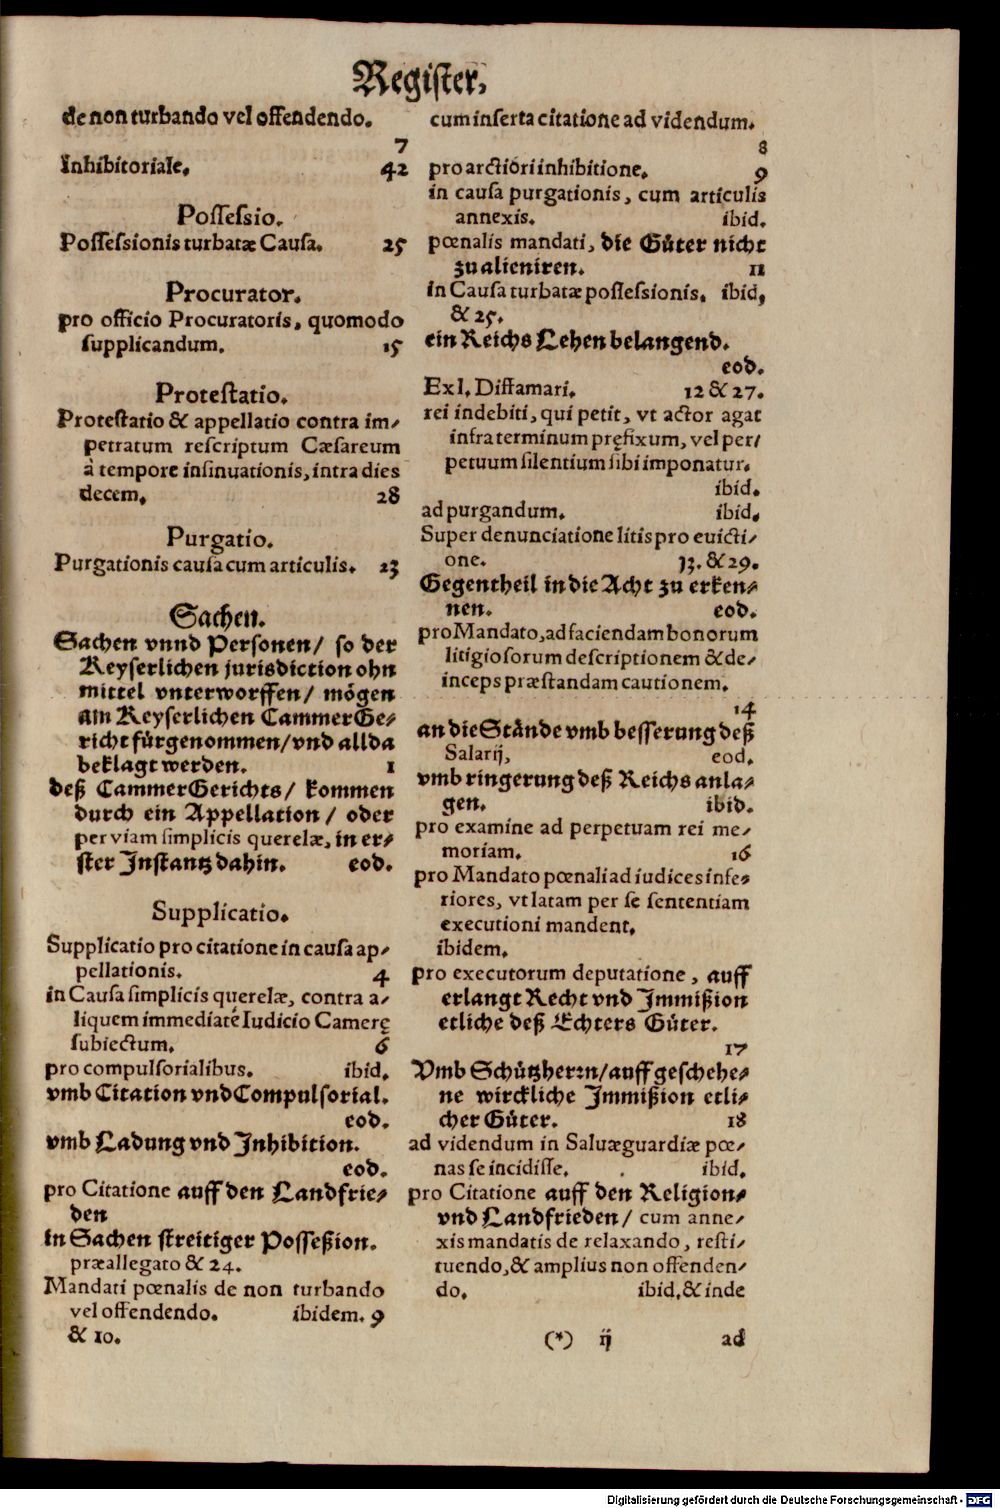 Register.
de non turbando vel offendendo.
7
Inhibitoriale. 42
Possessio.
Possessionis turbatæ Causa. 25
Procurator.
pro officio Procuratoris, quomodo
supplicandum. 15
Protestatio.
Protestatio & appellatio contra im-
petratum rescriptum Cæsareum
à tempore insinuationis, intra dies
decem. 28
Purgatio.
Purgationis causa cum articulis. 23
Sachen.
Sachen vnnd Personen/ so der
Keyserlichen jurisdiction ohn
mittel vnterworffen/ mögen
am Keyserlichen CammerGe-
richt fürgenommen/ vnd allda
beklagt werden. 1
deß CammerGerichts/ kommen
durch ein Appellation/ oder
per viam simplicis querelæ, in er-
ster Instantz dahin. eod.
Supplicatio.
Supplicatio pro citatione in causa ap-
pellationis. 4
in Causa simplicis querelæ, contra a-
liquem immediatè Iudicio Camerę
subiectum. 6
pro compulsorialibus. ibid.
vmb Citation vnd Compulsorial.
eod.
vmb Ladung vnd Inhibition.
eod.
pro Citatione auff den Landfrie-
den
in Sachen streitiger Posseßion.
præallegato & 24.
Mandati pœnalis de non turbando
vel offendendo. ibidem. 9
& 10.
cum inserta citatione ad videndum.
8
pro arctiori inhibitione. 9
in causa purgationis, cum articulis
annexis. ibid.
pœnalis mandati, die Güter nicht
zu alieniren. 11
in Causa turbatæ possessionis. ibid,
& 25.
ein Reichs Lehen belangend.
eod.
Ex l. Diffamari. 12 & 27.
rei indebiti, qui petit, vt actor agat
infra terminum pręfixum, vel per-
petuum silentium sibi imponatur.
ibid.
ad purgandum. ibid.
Super denunciatione litis pro euicti-
one. 13. & 29.
Gegentheil in die Acht zu erken-
nen. eod.
pro Mandato, ad faciendam bonorum
litigiosorum descriptionem & de-
inceps præstandam cautionem.
14
an die Stände vmb besserung deß
Salarij, eod.
vmb ringerung deß Reichs anla-
gen. ibid.
pro examine ad perpetuam rei me-
moriam. 16
pro Mandato pœnali ad iudices infe-
riores, vt latam per se sententiam
executioni mandent.
ibidem.
pro executorum deputatione, auff
erlangt Recht vnd Immißion
etliche deß Echters Güter.
17
Vmb Schützherrn/ auff geschehe-
ne wirckliche Immißion etli-
cher Güter. 18
ad videndum in Saluæguardiæ pœ-
nas se incidisse. ibid.
pro Citatione auff den Religion-
vnd Landfrieden/ cum anne-
xis mandatis de relaxando, resti-
tuendo, & amplius non offenden-
do. ibid. & inde
(*) ij ad
Digitalisierung gefördert durch die Deutsche Forschungsgemeinschaft - DFG